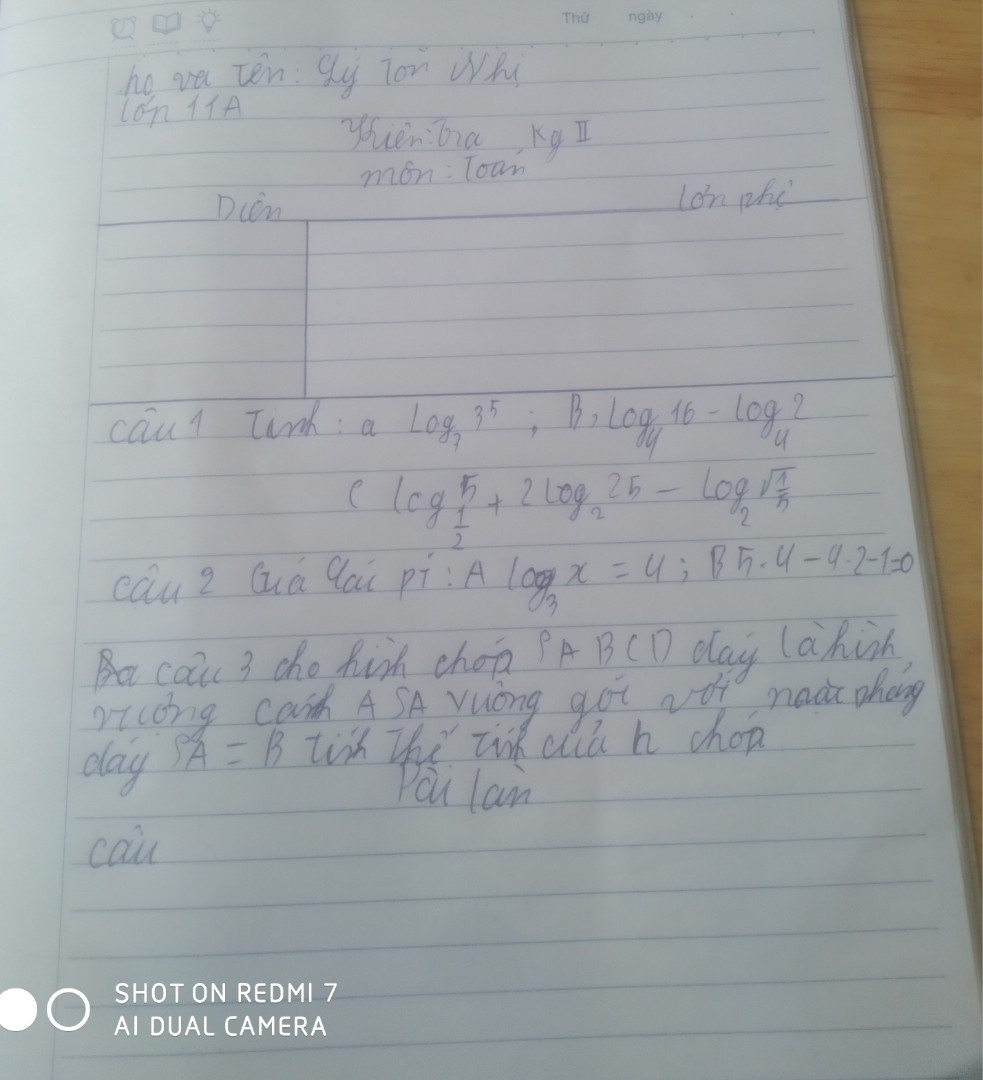 Thứ ngày
họ va tên: Lý Ton Nhi
lớn 11A
Kiên: Tra Kg II
môn: Toán
Diên lớn phê
câu 1 Tính: a Log₃ 3⁵ ; B, log₄ 16 - log₄ 2
C log_{1/2} 5 + 2 log₂ 25 - log₂ √(1/5)
câu 2 Giá pt: A log₃ x = 4; B 5.4-4.2-1=0
Ba câu 3 cho hình chóp SABCD đáy là hình
vuông canh A SA vuông gói với phảng
đáy SA = B tính thể tính của h chóp
Pài làn
câu
SHOT ON REDMI 7
AI DUAL CAMERA